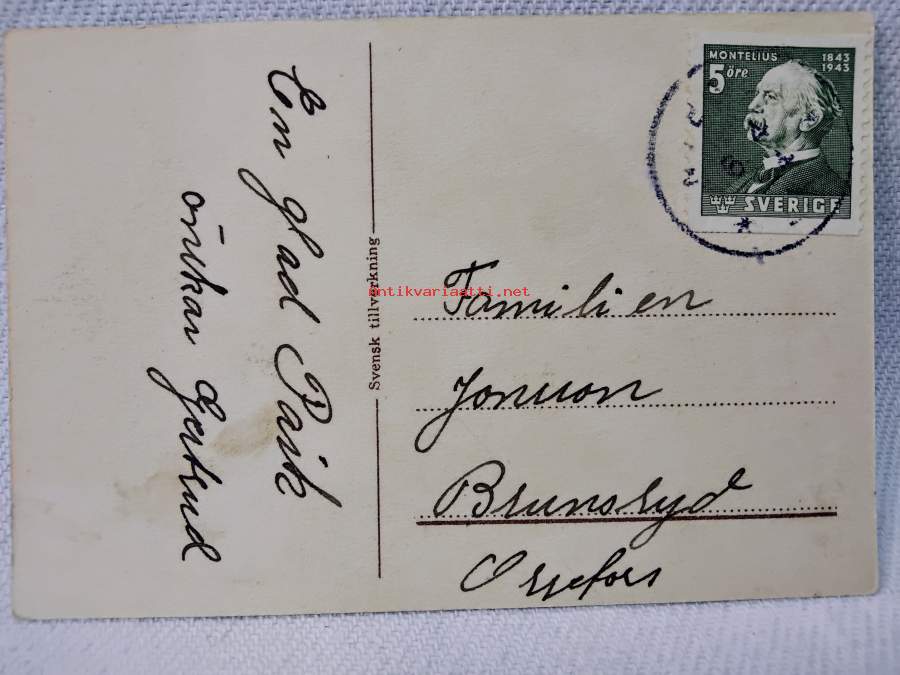 En glad Påsk
önskar Gertrud
Svensk tillverkning
MONTELIUS 1843
1943
5 öre
SVERIGE
Familien
Jonsson
Brunsryd
Orrefors
antikvariaatti.net